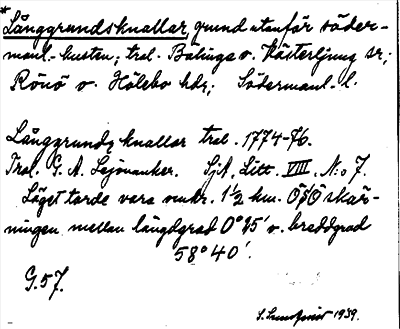 * Långgrundsknallar, grund utanför söder-
manl. kusten; trol. Bälinge o. Västerljung sr;
Rönö o. Hölebo hdr; Södermanl. l.
Långgrunds knallar trol. 1774-76.
Trol. G. A. Lejonanker. SjA, Litt. VIII. N:o 7.
Läget torde vara omkr. 1½ km. OSO skär-
ningen mellan längdgrad 0°45' o. breddgrad
58°40'.
G.57.
1939.